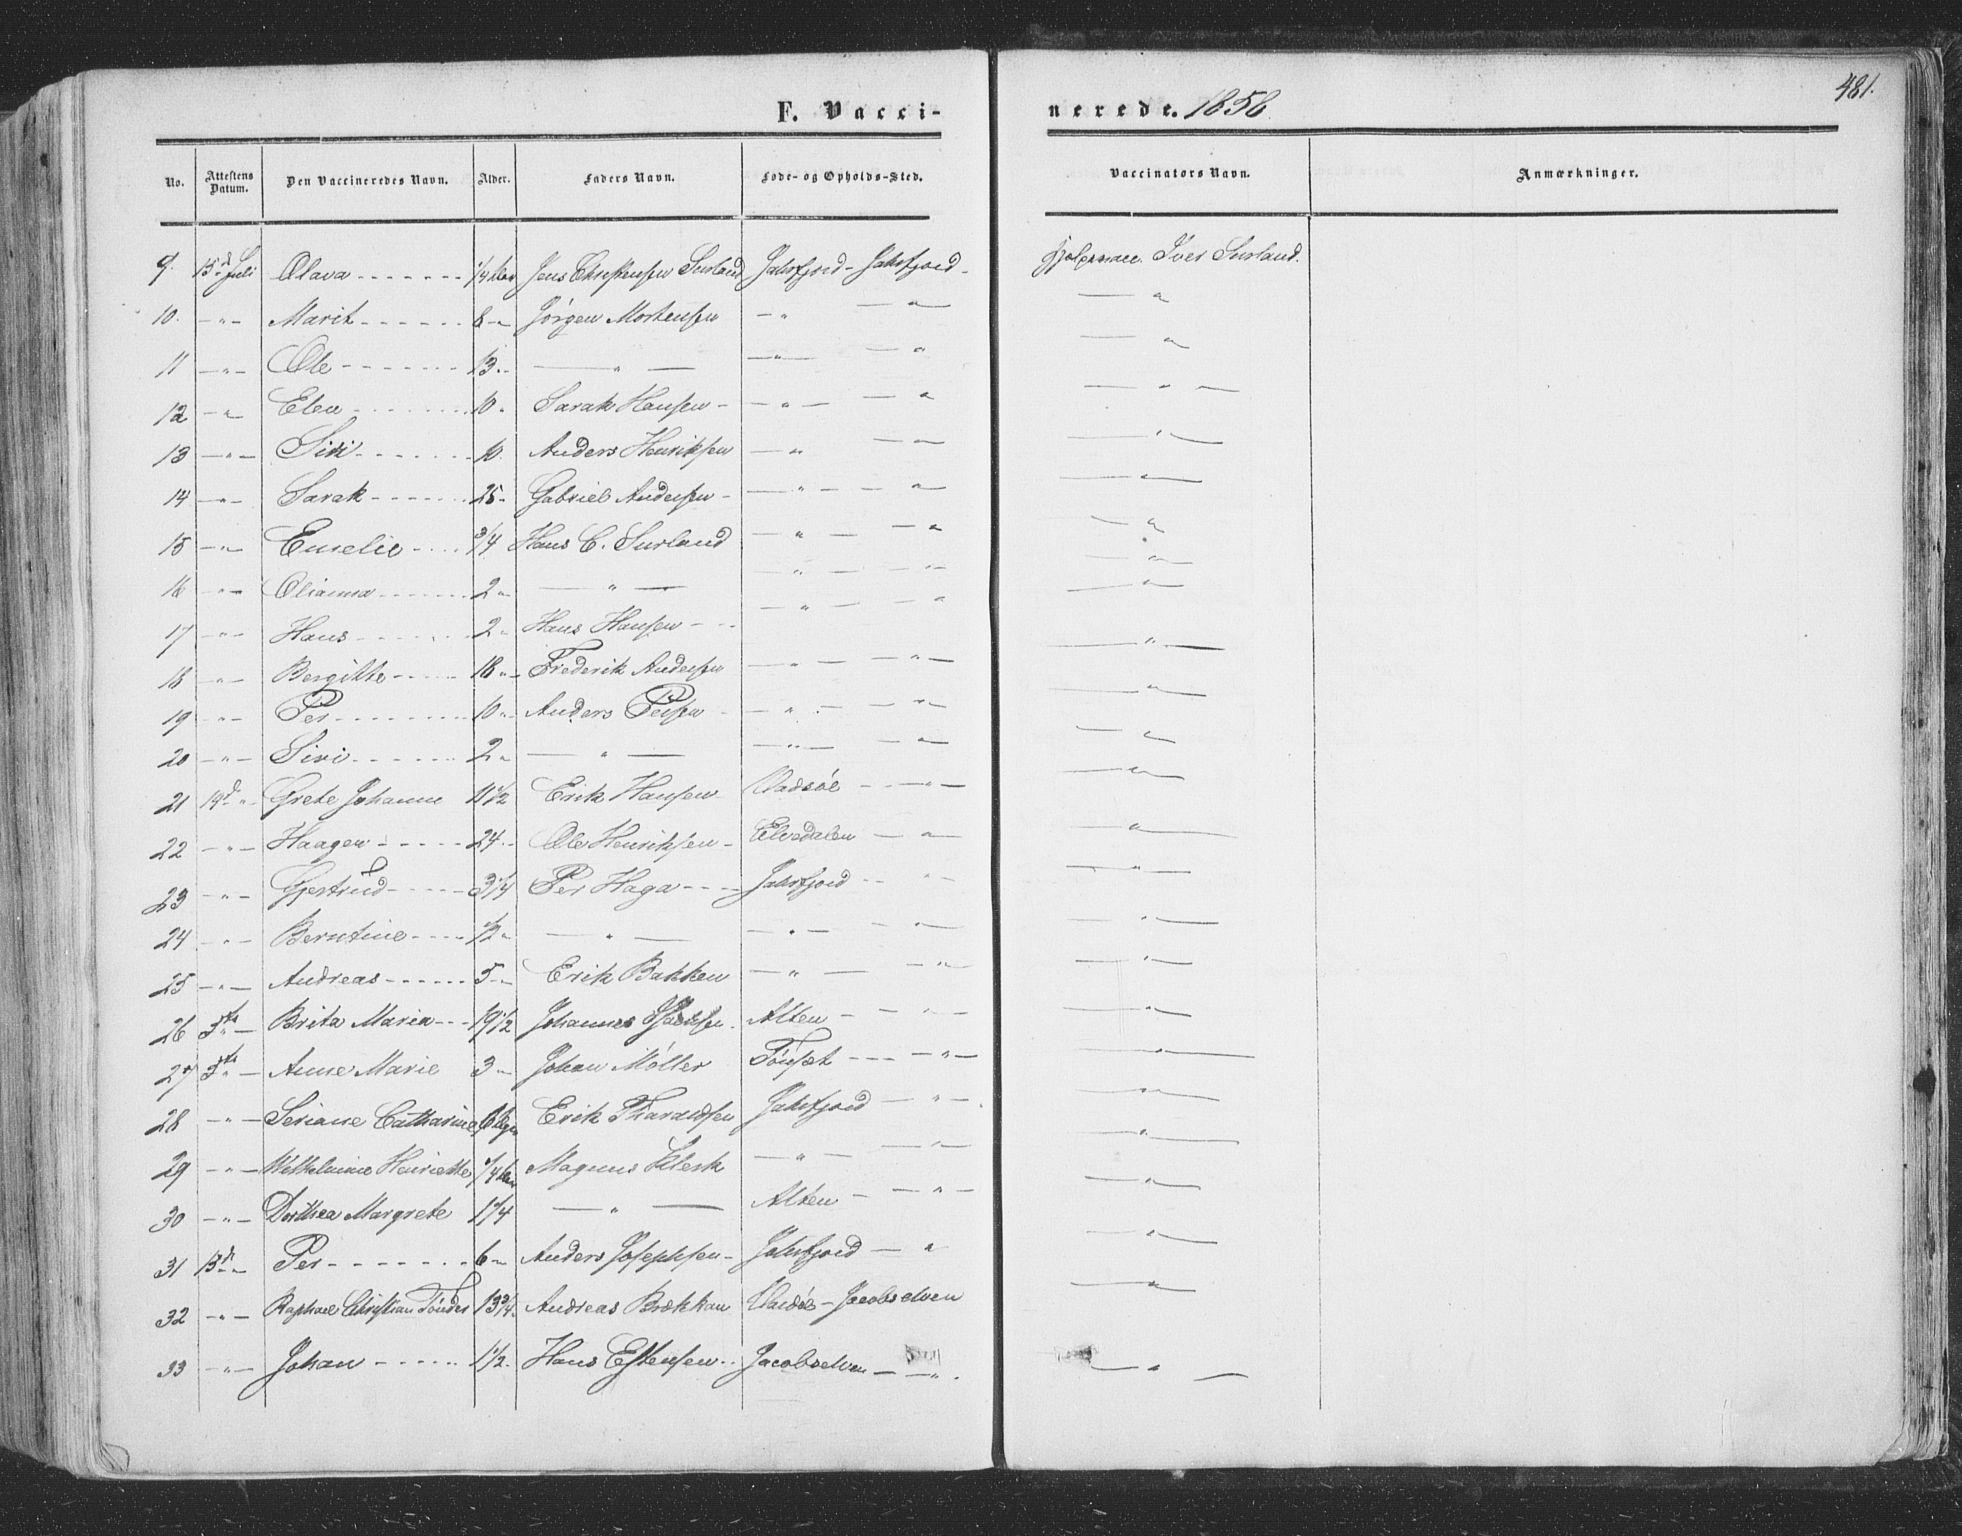 481.
F. Vacci-nerede. 1856.
No. Attestens Datum. Den Vaccineredes Navn. Alder. Faders Navn. Føde- og Opholds-Sted. Vaccinators Navn. Anmærkninger.
9. 15d Juli Olava 1/4 Jens Christensen Surland Jakofjord - Jakofjord - Iver Surland.
10. - " - Marit 8 - " Jørgen Mortensen - " - " - "
11 - " - Ole 13 - " - " - - " - " - "
12 - " - Elen 10 " Sarak Hansen - " - - " - "
13 - " - Siri 10. Anders Henriksen - " - " - "
14 - " - Sarak 25 - Gabriel Andersen - " - - " - "
15 - " - Emelie 3/4 Hans C. Surland - " - - " - "
16 - " - Olianna 2 - " - " - - " - - " - "
17 - " - Hans 2 " Hans Hansen - " - - " - "
18 - " - Bergitte 18 " Frederik Andersen - " - - " - "
19 - " - Per 10 " Anders Persen - " - - " - "
20 - " - Siri 2 " - " - - " - - " - "
21 19d " Grete Johanne 11 1/2 Erik Hansen Vadsöe - " - "
22 - " - Haagen 24 - Ole Henriksen - Elvedalen - " - "
23 - " - Gjertrud 3 1/4 Per Haga Jakofjord - " - "
24 - " - Berntine 1/2 " - " - - " - - " - "
25 - " - Andreas 5 - " Erik Bakken - " - - " - "
26 5te " - Brita Maria 19 1/2 Johannes Alten - " - "
27 5te " - Anne Marie 3 - " Johan Møller Tönset - " - "
28 - " - Seriane Catharine 6 Erik Tharaldsen Jakofjord - " - "
29 - " - Wilhelmine Henriette 1/4 Magnus Klerk - " - - " - "
30 - " - Dorthea Margrete 1 1/4 - " - Alten - " - "
31 13d " Per 6 - " Anders Josephsen - Jakofjord - " - "
32 - " - Raphael Christian Tönder 13 3/4 Andreas Brækkan Vadsöe - Jacobselven - "
33 - " - Johan 1 1/2. Hans Estensen Jacobselven - " - - "